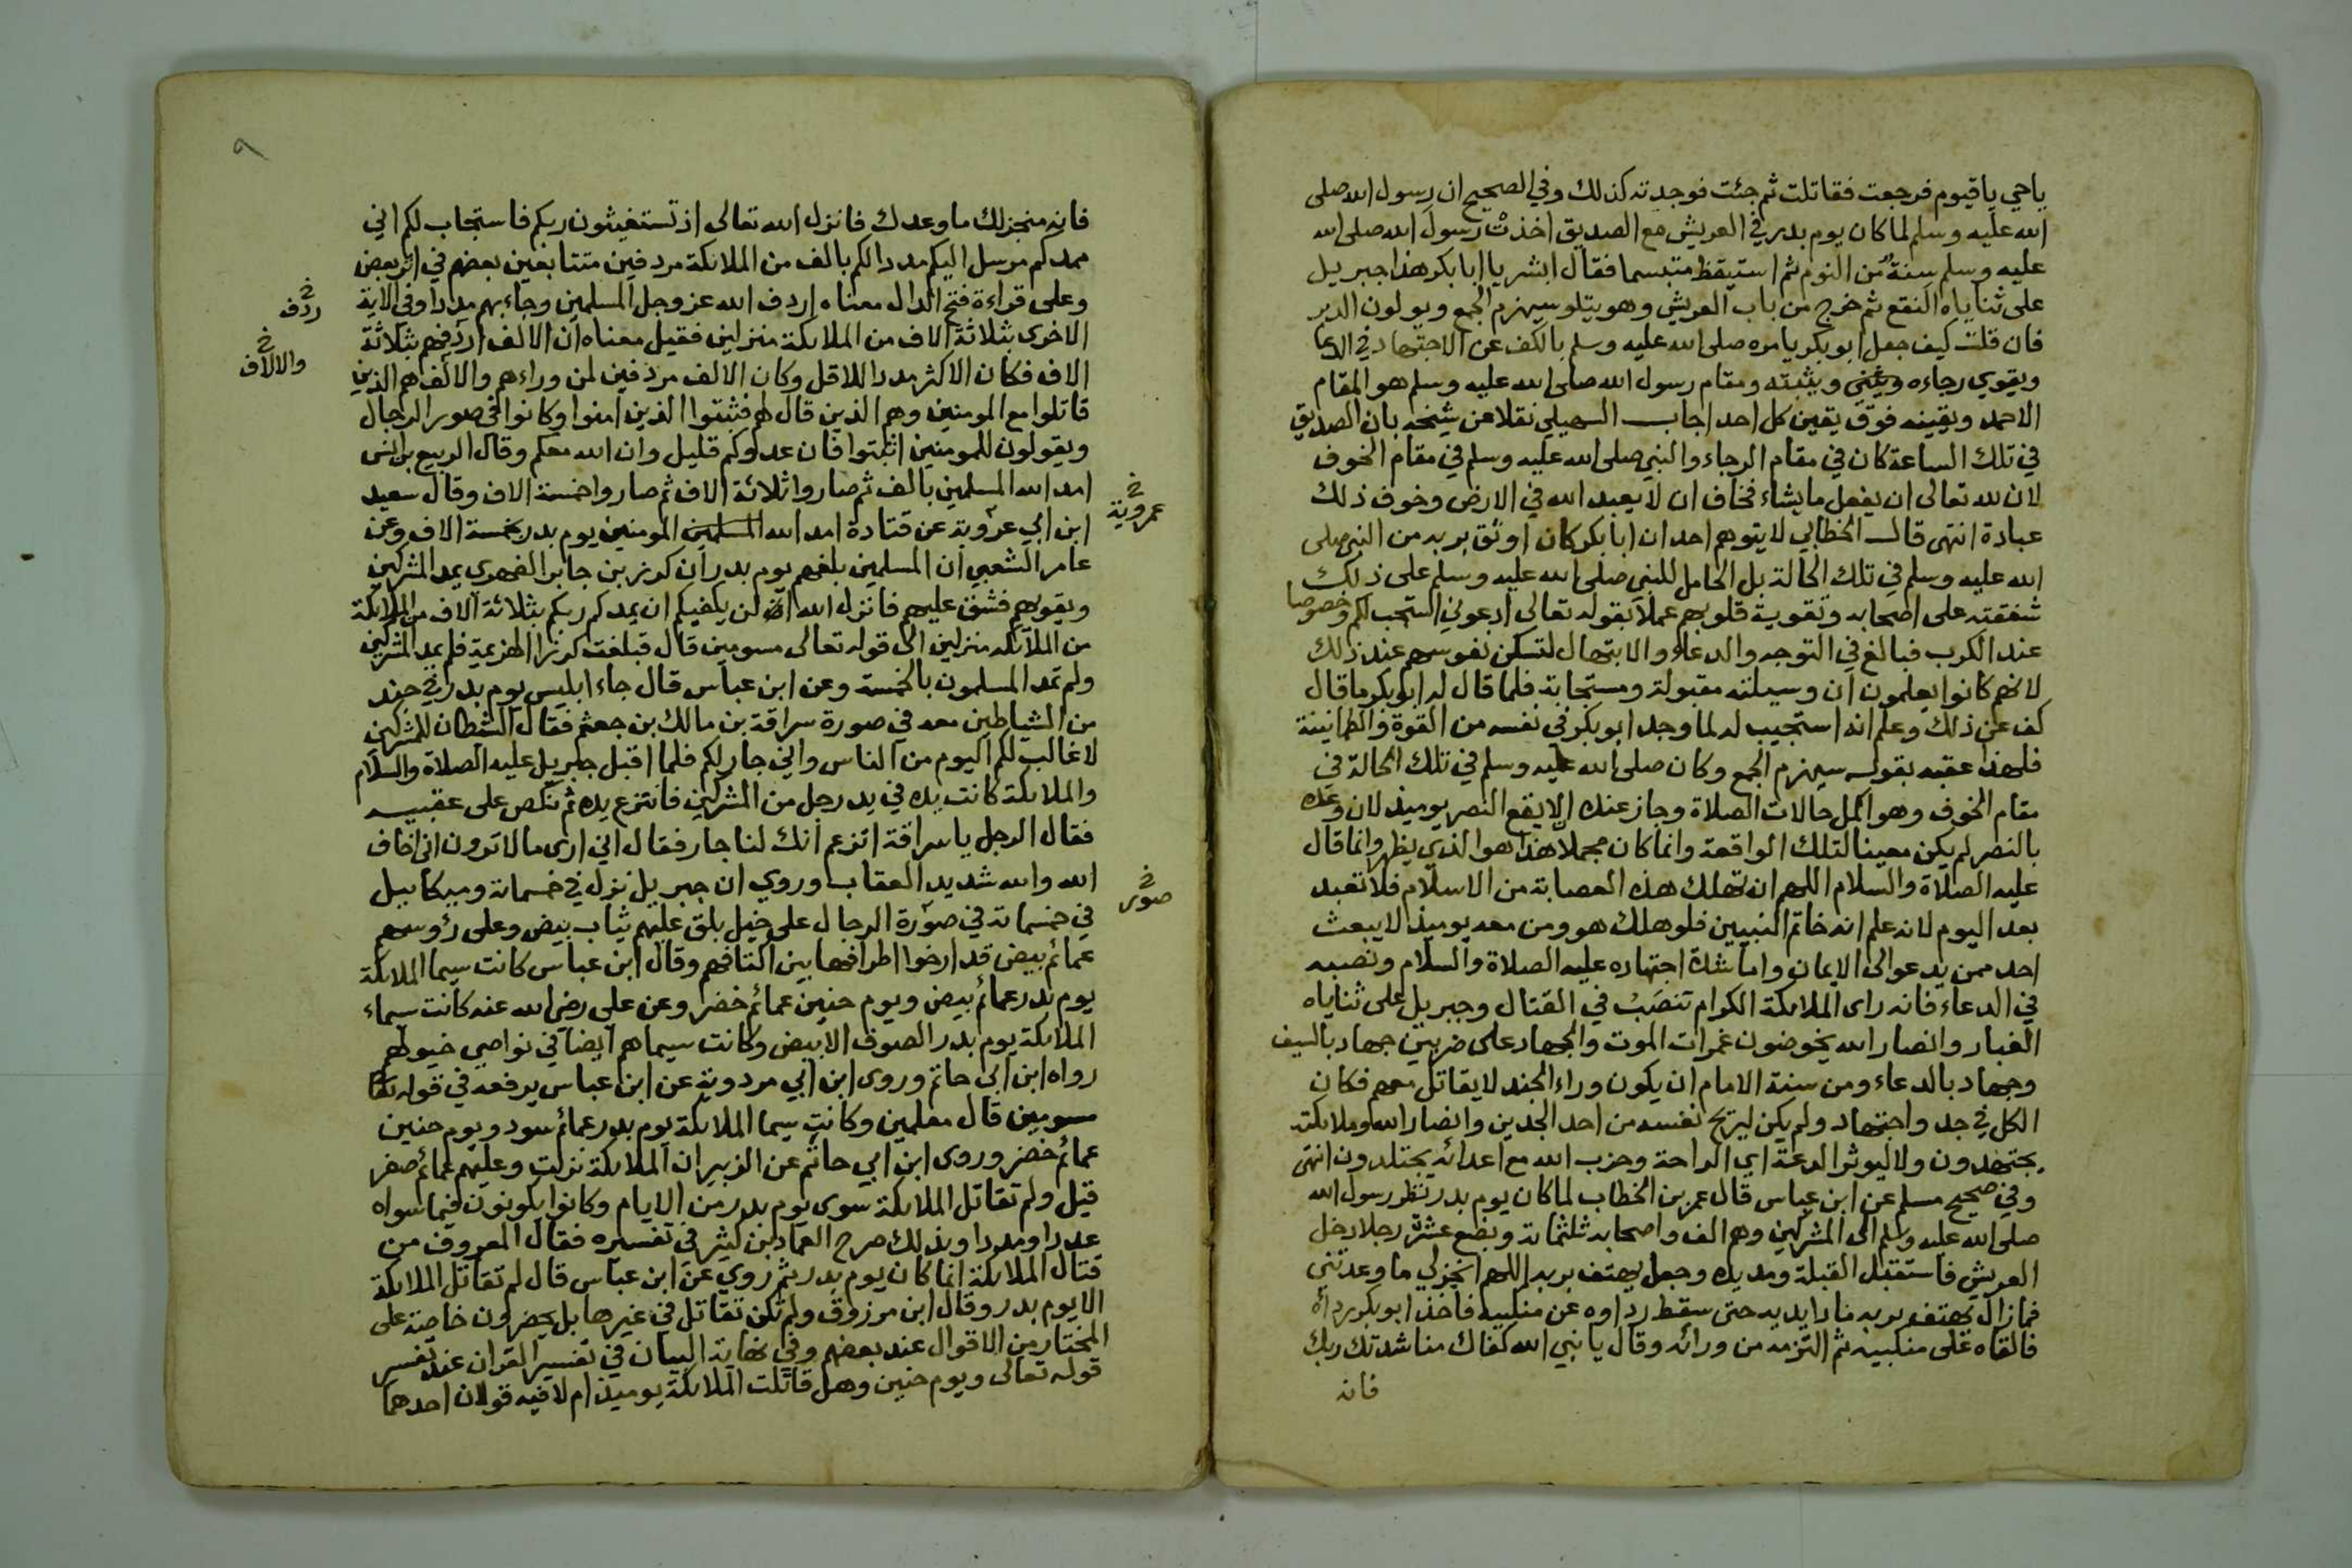 ياحي ياقيوم فرجعت فقاتلت ثم جئت فوجدته كذلك وفي الصحيح ان رسول الله صلى
الله عليه وسلم لما كان يوم بدر في العريش مع الصديق اخذت رسول الله صلى الله
عليه وسلم سنة من النوم ثم استيقظ متبسما فقال ابشر يا ابا بكر هذا جبريل
على ثناياه النقع ثم خرج من باب العريش وهو يتلو سيهزم الجمع ويولون الدبر
فان قلت كيف جعل ابو بكر يامره صلى الله عليه وسلم بالكف عن الاجتهاد في الدعا
ويقوي رجاءه ويثبته ومقام رسول الله صلى الله عليه وسلم هو المقام
الاحمد ويقينه فوق يقين كل احد اجاب السهيلي نقلا عن شيخه بان الصديق
في تلك الساعة كان في مقام الرجاء والنبي صلى الله عليه وسلم في مقام الخوف
لان لله تعالى ان يفعل ما يشاء فخاف ان لا يعبد الله في الارض وخوف ذلك
عبادة انتهى قال الخطابي لا يتوهم احد ان ابا بكر كان اوثق بربه من النبي صلى
الله عليه وسلم في تلك الحالة بل الحامل للنبي صلى الله عليه وسلم على ذلك
شفقته على اصحابه وتقوية قلوبهم عملا بقوله تعالى ادعوني استجب لكم وخصوصا
عند الكرب فبالغ في التوجه والدعاء والابتهال لتسكن نفوسهم عند ذلك
لانهم كانوا يعلمون ان وسيلته مقبولة ومستجابة فلما قال له ابو بكر ما قال
كف عن ذلك وعلم انه استجيب له لما وجد ابو بكر في نفسه من القوة والطمانينة
فلهذا عقبه بقوله سيهزم الجمع وكان صلى الله عليه وسلم في تلك الحالة في
مقام الخوف وهو اكمل حالات الصلاة وجاز عنده الا يقع النصر يوميذ لان وعده
بالنصر لم يكن معينا لتلك الواقعة وانما كان مجملا هذا هو الذي يظهر وانما قال
عليه الصلاة والسلام اللهم ان تهلك هذه العصابة من الاسلام فلا تعبد
بعد اليوم لانه علم انه خاتم النبيين فلو هلك هو ومن معه يوميذ لا يبعث
احد ممن يدعو الى الايمان واما شدة اجتهاده عليه الصلاة والسلام ونصبه
في الدعاء فانه راى الملائكة الكرام تنصب في القتال وجبريل على ثناياه
الغبار وانصار الله يخوضون غمرات الموت والجهاد على ضربين جهاد بالسيف
وجهاد بالدعاء ومن سنة الامام ان يكون وراء الجند لا يقاتل معهم فكان
الكل في جد واجتهاد ولم يكن ليريح نفسه من احد الجدين وانصار الله وملائكته
يجتهدون ولا ليوثر الدعة اي الراحة وحزب الله مع اعدائه يجتلدون انتهى
وفي صحيح مسلم عن ابن عباس قال عمر بن الخطاب لما كان يوم بدر نظر رسول الله
صلى الله عليه وسلم الى المشركين وهم الف واصحابه ثلثماية وبضع عشرة رجلا دخل
العريش فاستقبل القبلة ومد يده وجعل يهتف بربه اللهم انجز لي ما وعدتني
فما زال يهتف بربه مادا يديه حتى سقط رداوه عن منكبيه فاخذ ابو بكر رداه
فالقاه على منكبيه ثم التزمه من ورائه وقال يا نبي الله كفاك مناشدتك ربك
فانه
٩
فانه منجز لك ما وعدك فانزل الله تعالى اذ تستغيثون ربكم فاستجاب لكم اني
ممدكم مرسل اليكم مددا لكم بالف من الملائكة مردفين متتابعين بعضهم في اثر بعض
وعلى قراءة فتح الدال معناه اردف الله عز وجل المسلمين وجاء بهم مددا وفي الاية
ردف
الاخرى بثلاثة الاف من الملائكة منزلين فقيل معناه ان الالف اردفهم بثلاثة
والالاف
الاف فكان الاكثر مددا للاقل وكان الالف مردفين لمن وراءهم والالف هم الذين
قاتلوا مع المومنين وهم الذين قال لهم فثبتوا الذين امنوا وكانوا في صور الرجال
ويقولون للمومنين اثبتوا فان عدوكم قليل وان الله معكم وقال الربيع بن انس
امد الله المسلمين بالف ثم صاروا ثلاثة الاف ثم صاروا خمسة الاف وقال سعيد
عروبة
ابن ابي عروبة عن قتادة امد الله المسلمين المومنين يوم بدر بخمسة الاف وعن
عامر الشعبي ان المسلمين بلغهم يوم بدر ان كرز بن جابر الفهري يمد المشركين
ويقويهم فشق عليهم فانزل الله لن يكفيكم ان يمدكم ربكم بثلاثة الاف من الملائكة
من الملائكة منزلين الى قوله تعالى مسومين قال فبلغت كرزا الهزيمة فلم يمد المشركين
ولم تمد المسلمون بالخمسة وعن ابن عباس قال جاء ابليس يوم بدر في جند
من الشياطين معه في صورة سراقة بن مالك بن جعثم فقال الشيطان للمشركين
لا غالب لكم اليوم من الناس واني جار لكم فلما اقبل جبريل عليه الصلاة والسلام
والملائكة كانت يده في يد رجل من المشركين فانتزع يده ثم نكص على عقبيه
فقال الرجل يا سراقة اتزعم انك لنا جار فقال اني ارى ما لا ترون اني اخاف
الله والله شديد العقاب وروي ان جبريل نزل في خمسماية وميكاييل
صور
في خمسماية في صورة الرجال على خيل بلق عليهم ثياب بيض وعلى رؤوسهم
عمائم بيض قد ارخوا اطرافها بين اكتافهم وقال ابن عباس كانت سيما الملائكة
يوم بدر عمائم بيض ويوم حنين عمائم خضر وعن علي رضي الله عنه كانت سيماء
الملائكة يوم بدر الصوف الابيض وكانت سيماهم ايضا في نواصي خيولهم
رواه ابن ابى حاتم وروى ابن ابي مردوية عن ابن عباس يرفعه في قوله تعالى
مسومين قال معلمين وكانت سيما الملائكة يوم بدر عمائم سود ويوم حنين
عمائم خضر وروى ابن ابي حاتم عن الزبير ان الملائكة نزلت وعليهم عمائم صفر
قيل ولم تقاتل الملائكة سوى يوم بدر من الايام وكانوا يكونون فيما سواه
عددا ومددا وبذلك صرح العماد بن كثير في تفسيره فقال المعروف من
قتال الملائكة انما كان يوم بدر ثم روي عن ابن عباس قال لم تقاتل الملائكة
الا يوم بدر وقال ابن مرزوق ولم تكن تقاتل في غيرها بل يحضرون خاصة على
المختار من الاقوال عند بعضهم وفي نهاية البيان في تفسير القران عند تفسير
قوله تعالى ويوم حنين وهل قاتلت الملائكة يوميذ ام لا فيه قولان احدهما